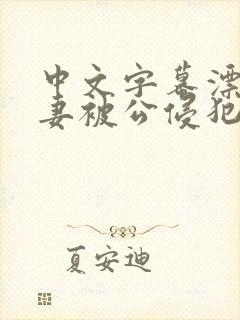 中文字幕漂
妻被公侵犯
夏安迪